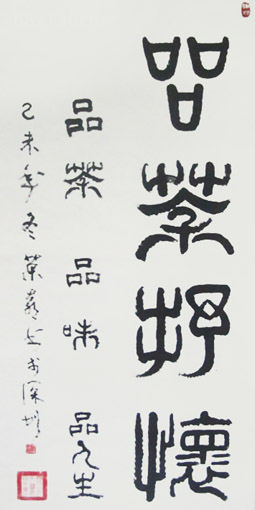 品茶抒懷
品茶 品味 品人生
未年冬 於深圳